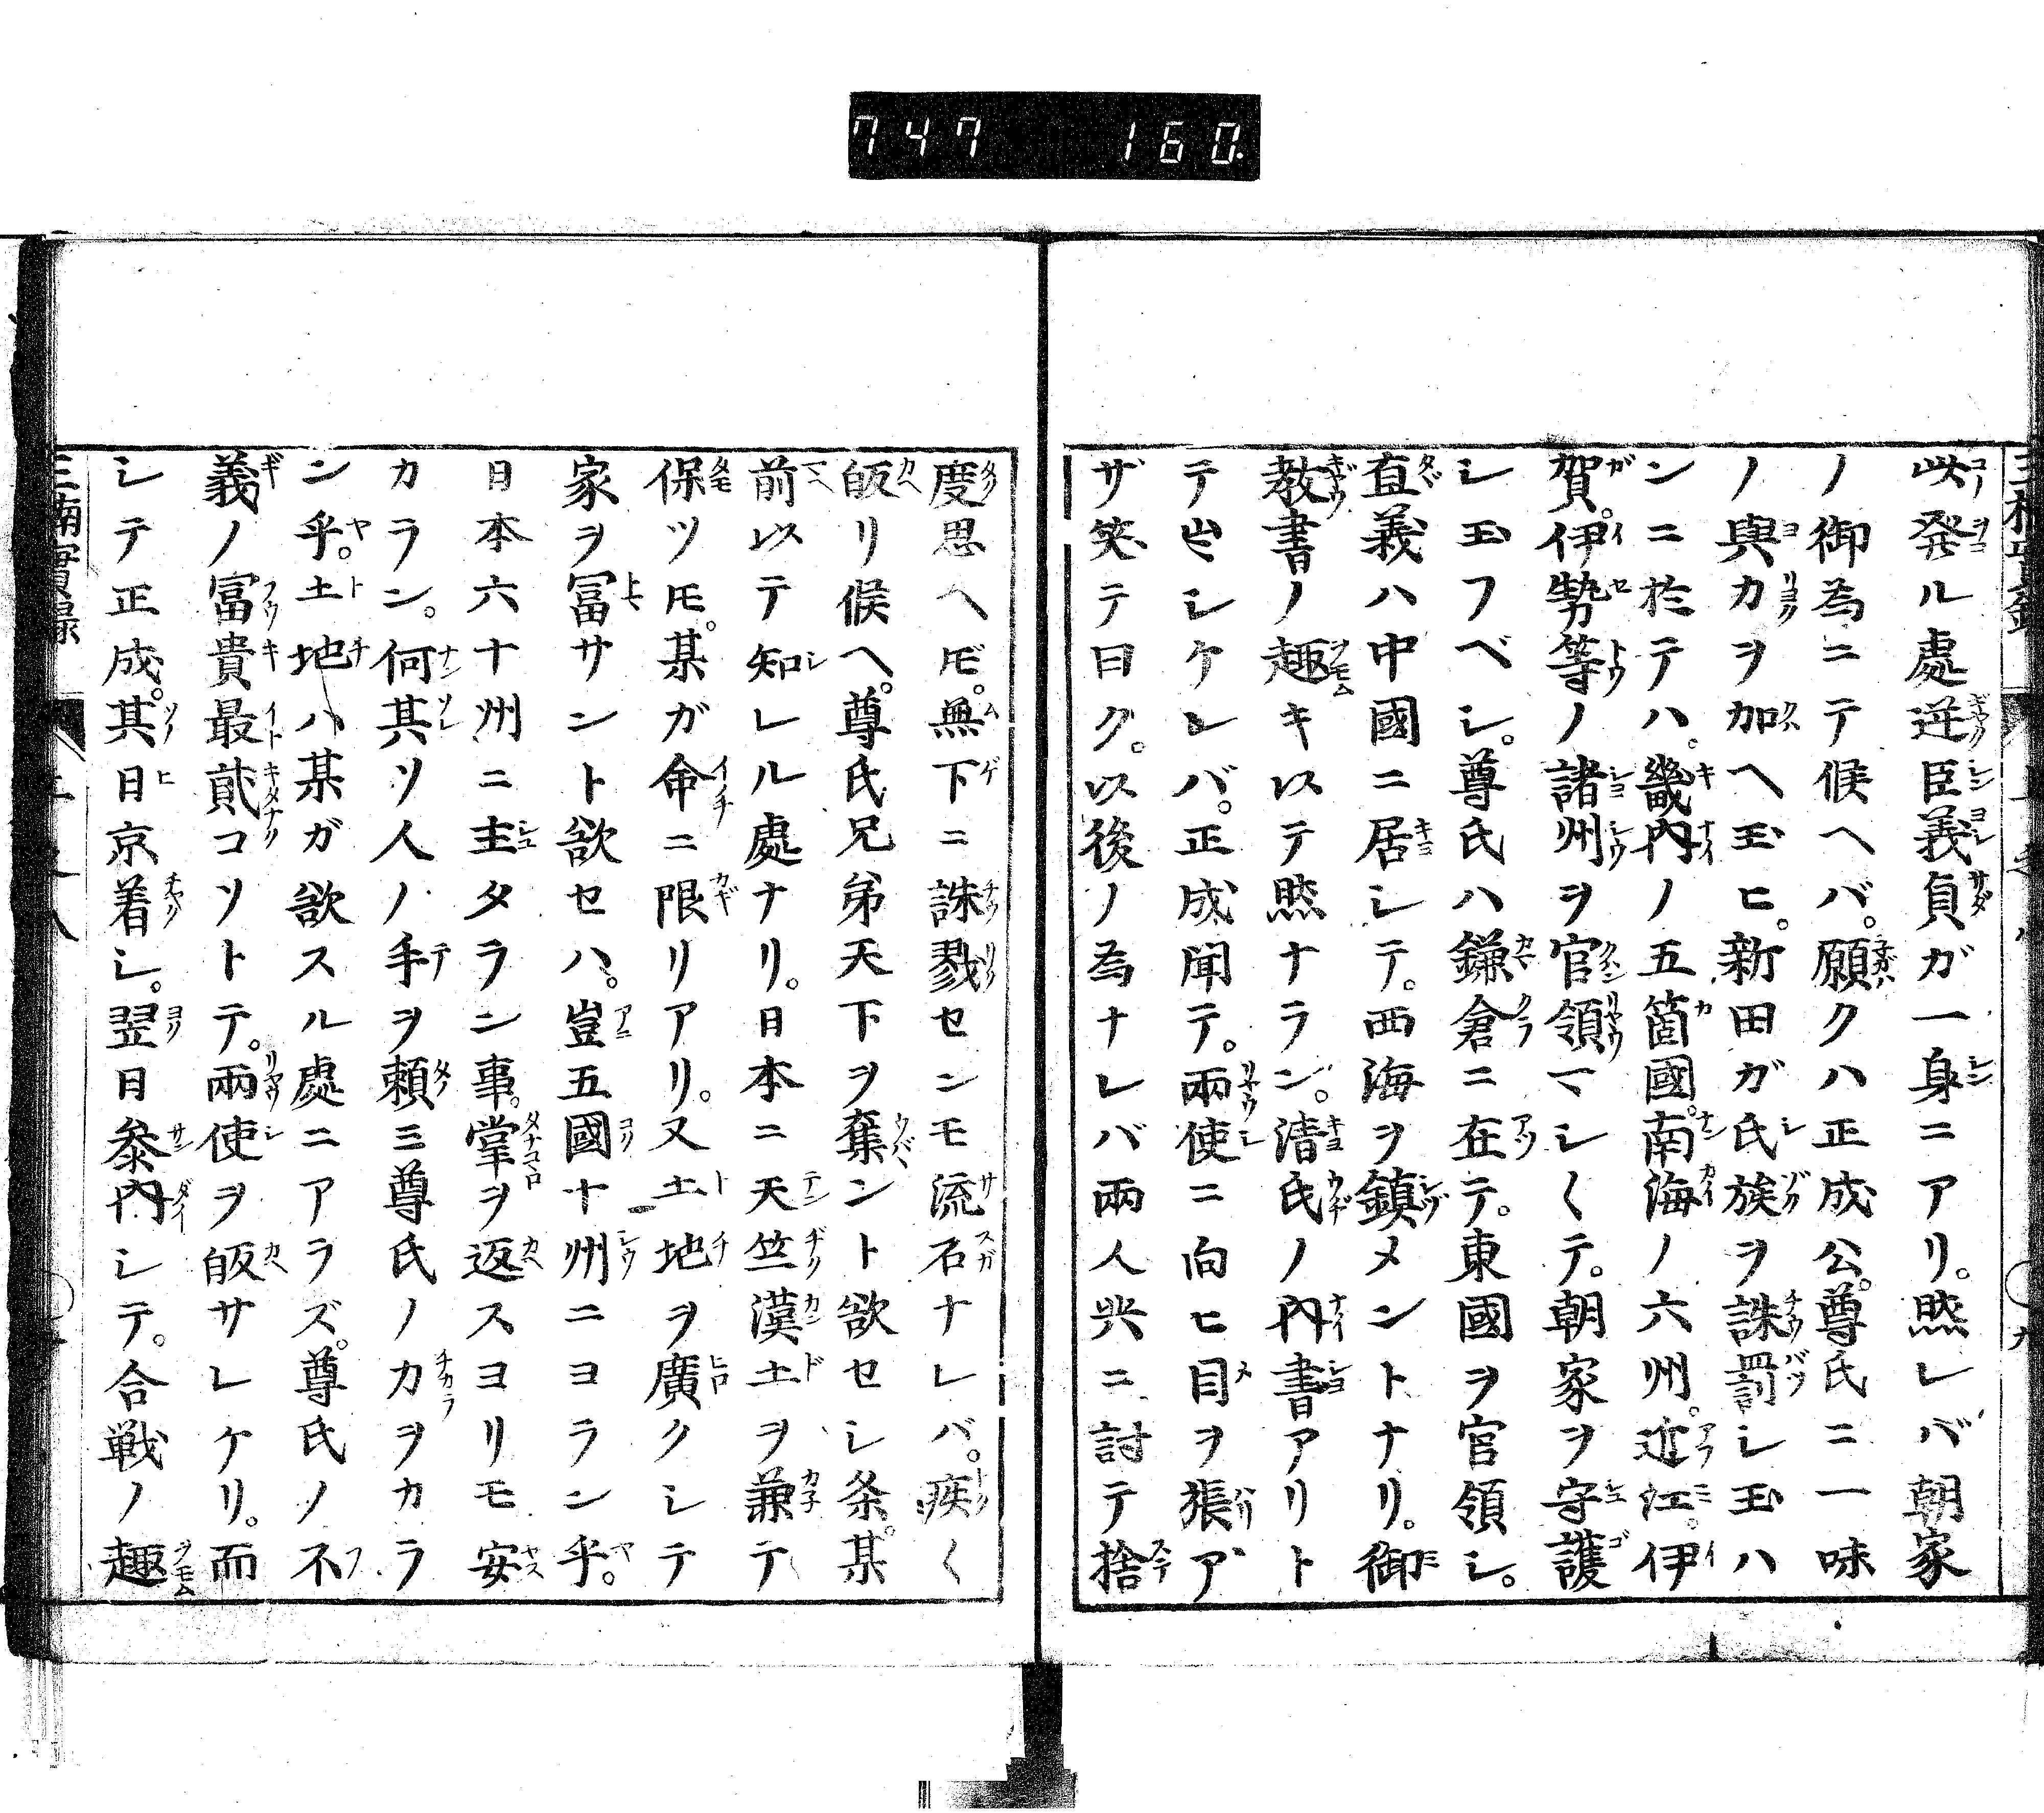 747 160.
此発ル處逆臣義貞ガ一身ニアリ。然レバ朝家
ノ御為ニテ候ヘバ。願クハ正成公。尊氏ニ一味
ノ與力ヲ加ヘ玉ヒ。新田ガ氏族ヲ誅罰シ玉ハ
ンニ於テハ。畿內ノ五箇國。南海ノ六州。近江。伊
賀。伊勢等ノ諸州ヲ官領マシ〱テ。朝家ヲ守護
シ玉フベシ。尊氏ハ鎌倉ニ在テ。東國ヲ官領シ。
直義ハ中國ニ居シテ。西海ヲ鎮メントナリ。御
教書ノ趣キ以テ然ナラン。清氏ノ內書アリト
テ出シケレバ。正成聞テ。兩使ニ向ヒ目ヲ張ア
ザ笑テ曰ク。以後ノ為ナレバ兩人共ニ討テ捨
度思ヘ𪜈。無下ニ誅戮センモ流石ナレバ。疾〱
皈リ候ヘ。尊氏兄弟天下ヲ奪ント欲セシ条。某
前以テ知レル處ナリ。日本ニ天竺漢土ヲ兼テ
保ツ𪜈。某ガ命ニ限リアリ。又土地ヲ廣クシテ
家ヲ冨サント欲セハ。豈五國十州ニヨラン乎。
日本六十州ニ主タラン事。掌ヲ返スヨリモ安
カラン。何其ソ人ノ手ヲ頼ミ尊氏ノ力ヲカラ
ン乎。土地ハ某ガ欲スル處ニアラズ。尊氏ノ不
義ノ富貴最貮コソトテ。兩使ヲ皈サレケリ。而
シテ正成。其日京着シ。翌日叅內シテ。合戦ノ趣